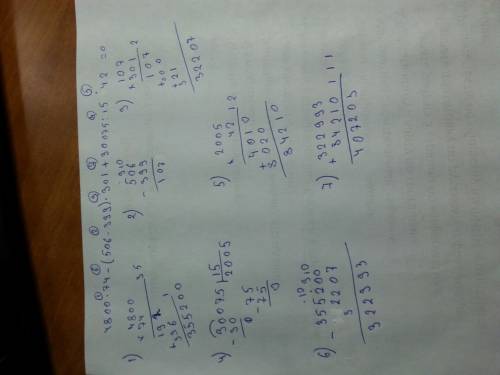 4800·74-(506-399)·301+30075:15·42=0
1) 4800
× 74
192
+336
355200
2) 506
-399
107
3) 107
301
107
+000
+321
32207
4) 30075 | 15
-30 2005
75
-75
0
5) 2005
× 42
4010
+8020
84210
6) -355200
32207
322993
7) 322993
+84210
407203